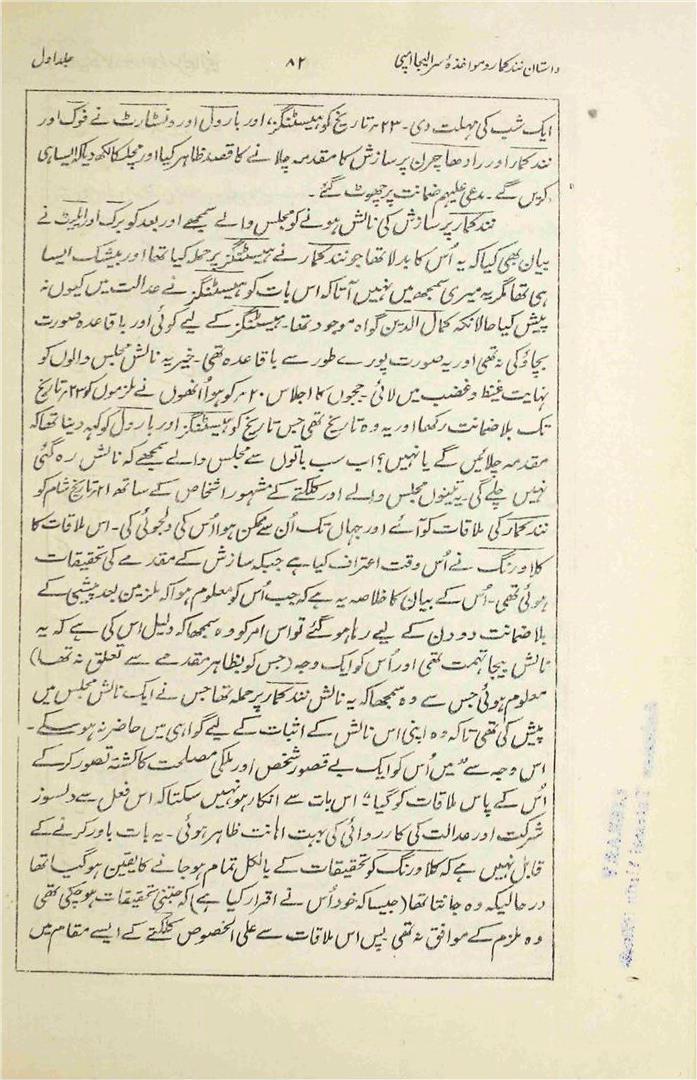 داستان نند کمار و مواخذۂ سر الیجا امپی ۸۲ جلد اول
ایک شب کی مہلت دی۔ ۲۳؍ تاریخ کو ہیسٹنگز، اور بارول اور ونسٹارٹ نے فوک اور
نند کمار اور رادھا چرن پر سازش کا مقدمہ چلانے کا قصد ظاہر کیا اور مچلکا لکھ دیا کہ ایسا ہی
کریں گے۔ مدعیٰ علیہم ضمانت پر چھوٹ گئے۔
نند کمار پر سازش کی نالش ہونے کو مجلس والے سمجھے اور بعد کو برک اور ایلیٹ نے
بیان بھی کیا کہ یہ اُس کا بدلا تھا جو نند کمار نے ہیسٹنگز پر حملہ کیا تھا اور بیشک ایسا
ہی تھا مگر یہ میری سمجھ میں نہیں آتا کہ اس بات کو ہیسٹنگز نے عدالت میں کیوں نہ
پیش کیا حالانکہ کمال الدین گواہ موجود تھا۔ ہیسٹنگز کے لیے کوئی اور باقاعدہ صورت
بچاؤ کی نہ تھی اور یہ صورت پورے طور سے باقاعدہ تھی۔ خیر یہ نالش مجلس والوں کو
نہایت غیظ و غضب میں لائی۔ ججوں کا اجلاس ۲۰؍ کو ہوا اُنھوں نے ملزموں کو ۲۳؍ تاریخ
تک بلا ضمانت رکھا اور یہ وہ تاریخ تھی جس تاریخ کو ہیسٹنگز اور بارول کو کہہ دینا تھا کہ
مقدمہ چلائیں گے یا نہیں؟ اب سب باتوں سے مجلس والے سمجھے کہ نالش رہ گئی
نہیں چلے گی۔ یہ تینوں مجلس والے اور کلکتے کے مشہور اشخاص کے ساتھ ۲۱؍ تاریخ شام کو
نند کمار کی ملاقات کو آئے اور جہاں تک اُن سے ممکن ہوا اُس کی دلجوئی کی۔ اس ملاقات کا
کلاورنگ نے اُس وقت اعتراف کیا ہے جبکہ سازش کے مقدمے کی تحقیقات
ہوئی تھی۔ اُس کے بیان کا خلاصہ یہ ہے کہ جب اُس کو معلوم ہوا کہ ملزمین بعد پیشی کے
بلا ضمانت دو دن کے لیے رہا ہو گئے تو اس امر کو وہ سمجھا کہ دلیل اس کی ہے کہ یہ
نالش بیجا تہمت تھی اور اُس کو ایک وجہ (جس کو بظاہر مقدمے سے تعلق نہ تھا)
معلوم ہوئی جس سے وہ سمجھا کہ یہ نالش نند کمار پر حملہ تھا جس نے ایک نالش مجلس میں
پیش کی تھی تاکہ وہ اپنی اس نالش کے اثبات کے لیے گواہی میں حاضر نہ ہو سکے۔
اس وجہ سے ”میں اُس کو ایک بے قصور شخص اور ملکی مصلحت کا کشتہ تصور کر کے
اُس کے پاس ملاقات کو گیا“ اس بات سے انکار ہو نہیں سکتا کہ اس فعل سے دلسوز
شرکت اور عدالت کی کارروائی کی بہت اہانت ظاہر ہوئی۔ یہ بات باور کرنے کے
قابل نہیں ہے کہ کلاورنگ کو تحقیقات کے بالکل تمام ہو جانے کا یقین ہو گیا تھا
درحالیکہ وہ جانتا تھا (جیسا کہ خود اُس نے اقرار کیا ہے) کہ جتنی تحقیقات ہو چکی تھی
وہ ملزم کے موافق نہ تھی پس اس ملاقات سے علی الخصوص کلکتے کے ایسے مقام میں